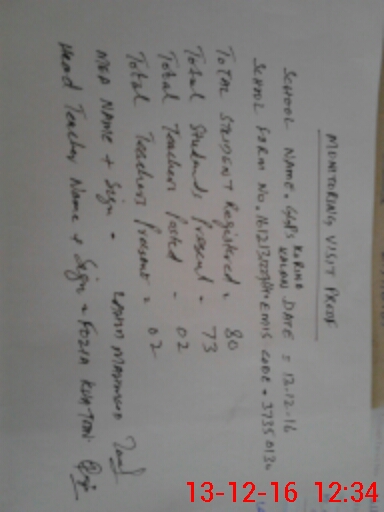 MONITORING VISIT PROOF
SCHOOL NAME. GGPS KORINA KALAN DATE = 12-12-16
SCHOOL FORM NO. EMIS CODE = 3735013
TOTAL STUDENT Registered = 80
Total Students Present = 73
Total Teachers Posted - 02
Total Teachers Present = 02
MEA NAME + Sign = MAHMOOD
Head Teacher Name + Sign = FOZIA
13-12-16 12:34